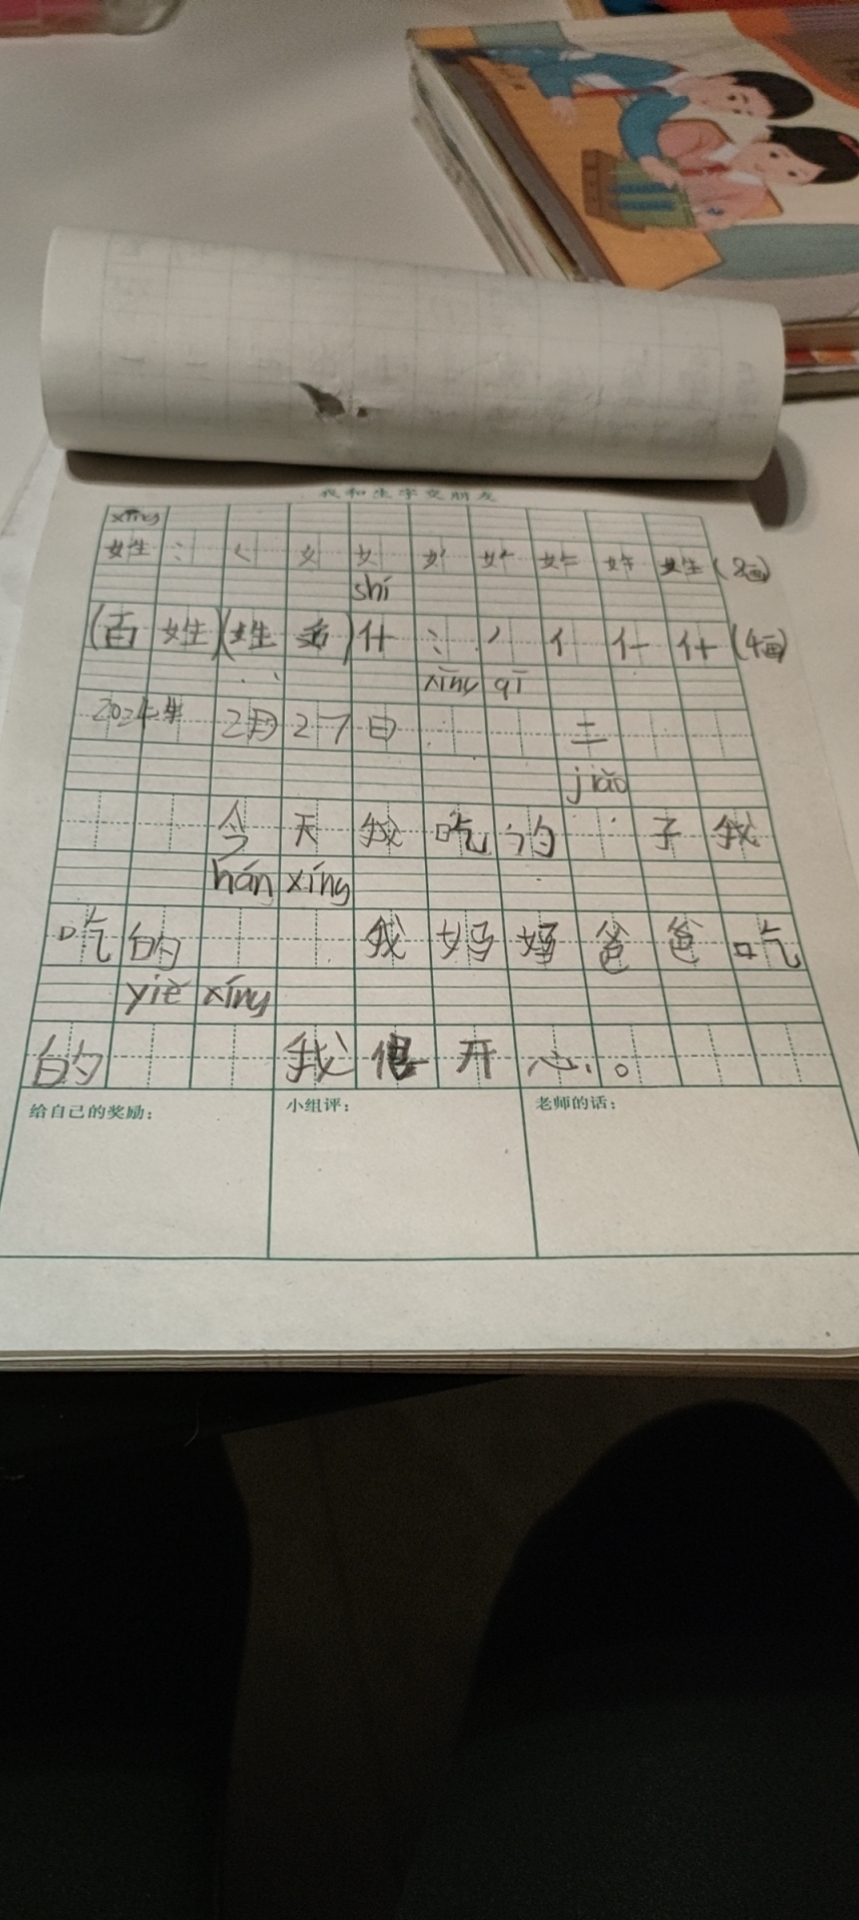 我和生字交朋友
xìng
姓 : く 女 女 女 姓 (8画)
shí
(百姓)(姓名)什 : 丿 亻 仁 什 (4画)
xīng qī
2024年 2月27日 三
jiǎo
今天我吃的 子我
hán xíng
吃的 我妈妈爸爸吃
yiè xíng
的 我很开心。
给自己的奖励: 小组评: 老师的话: